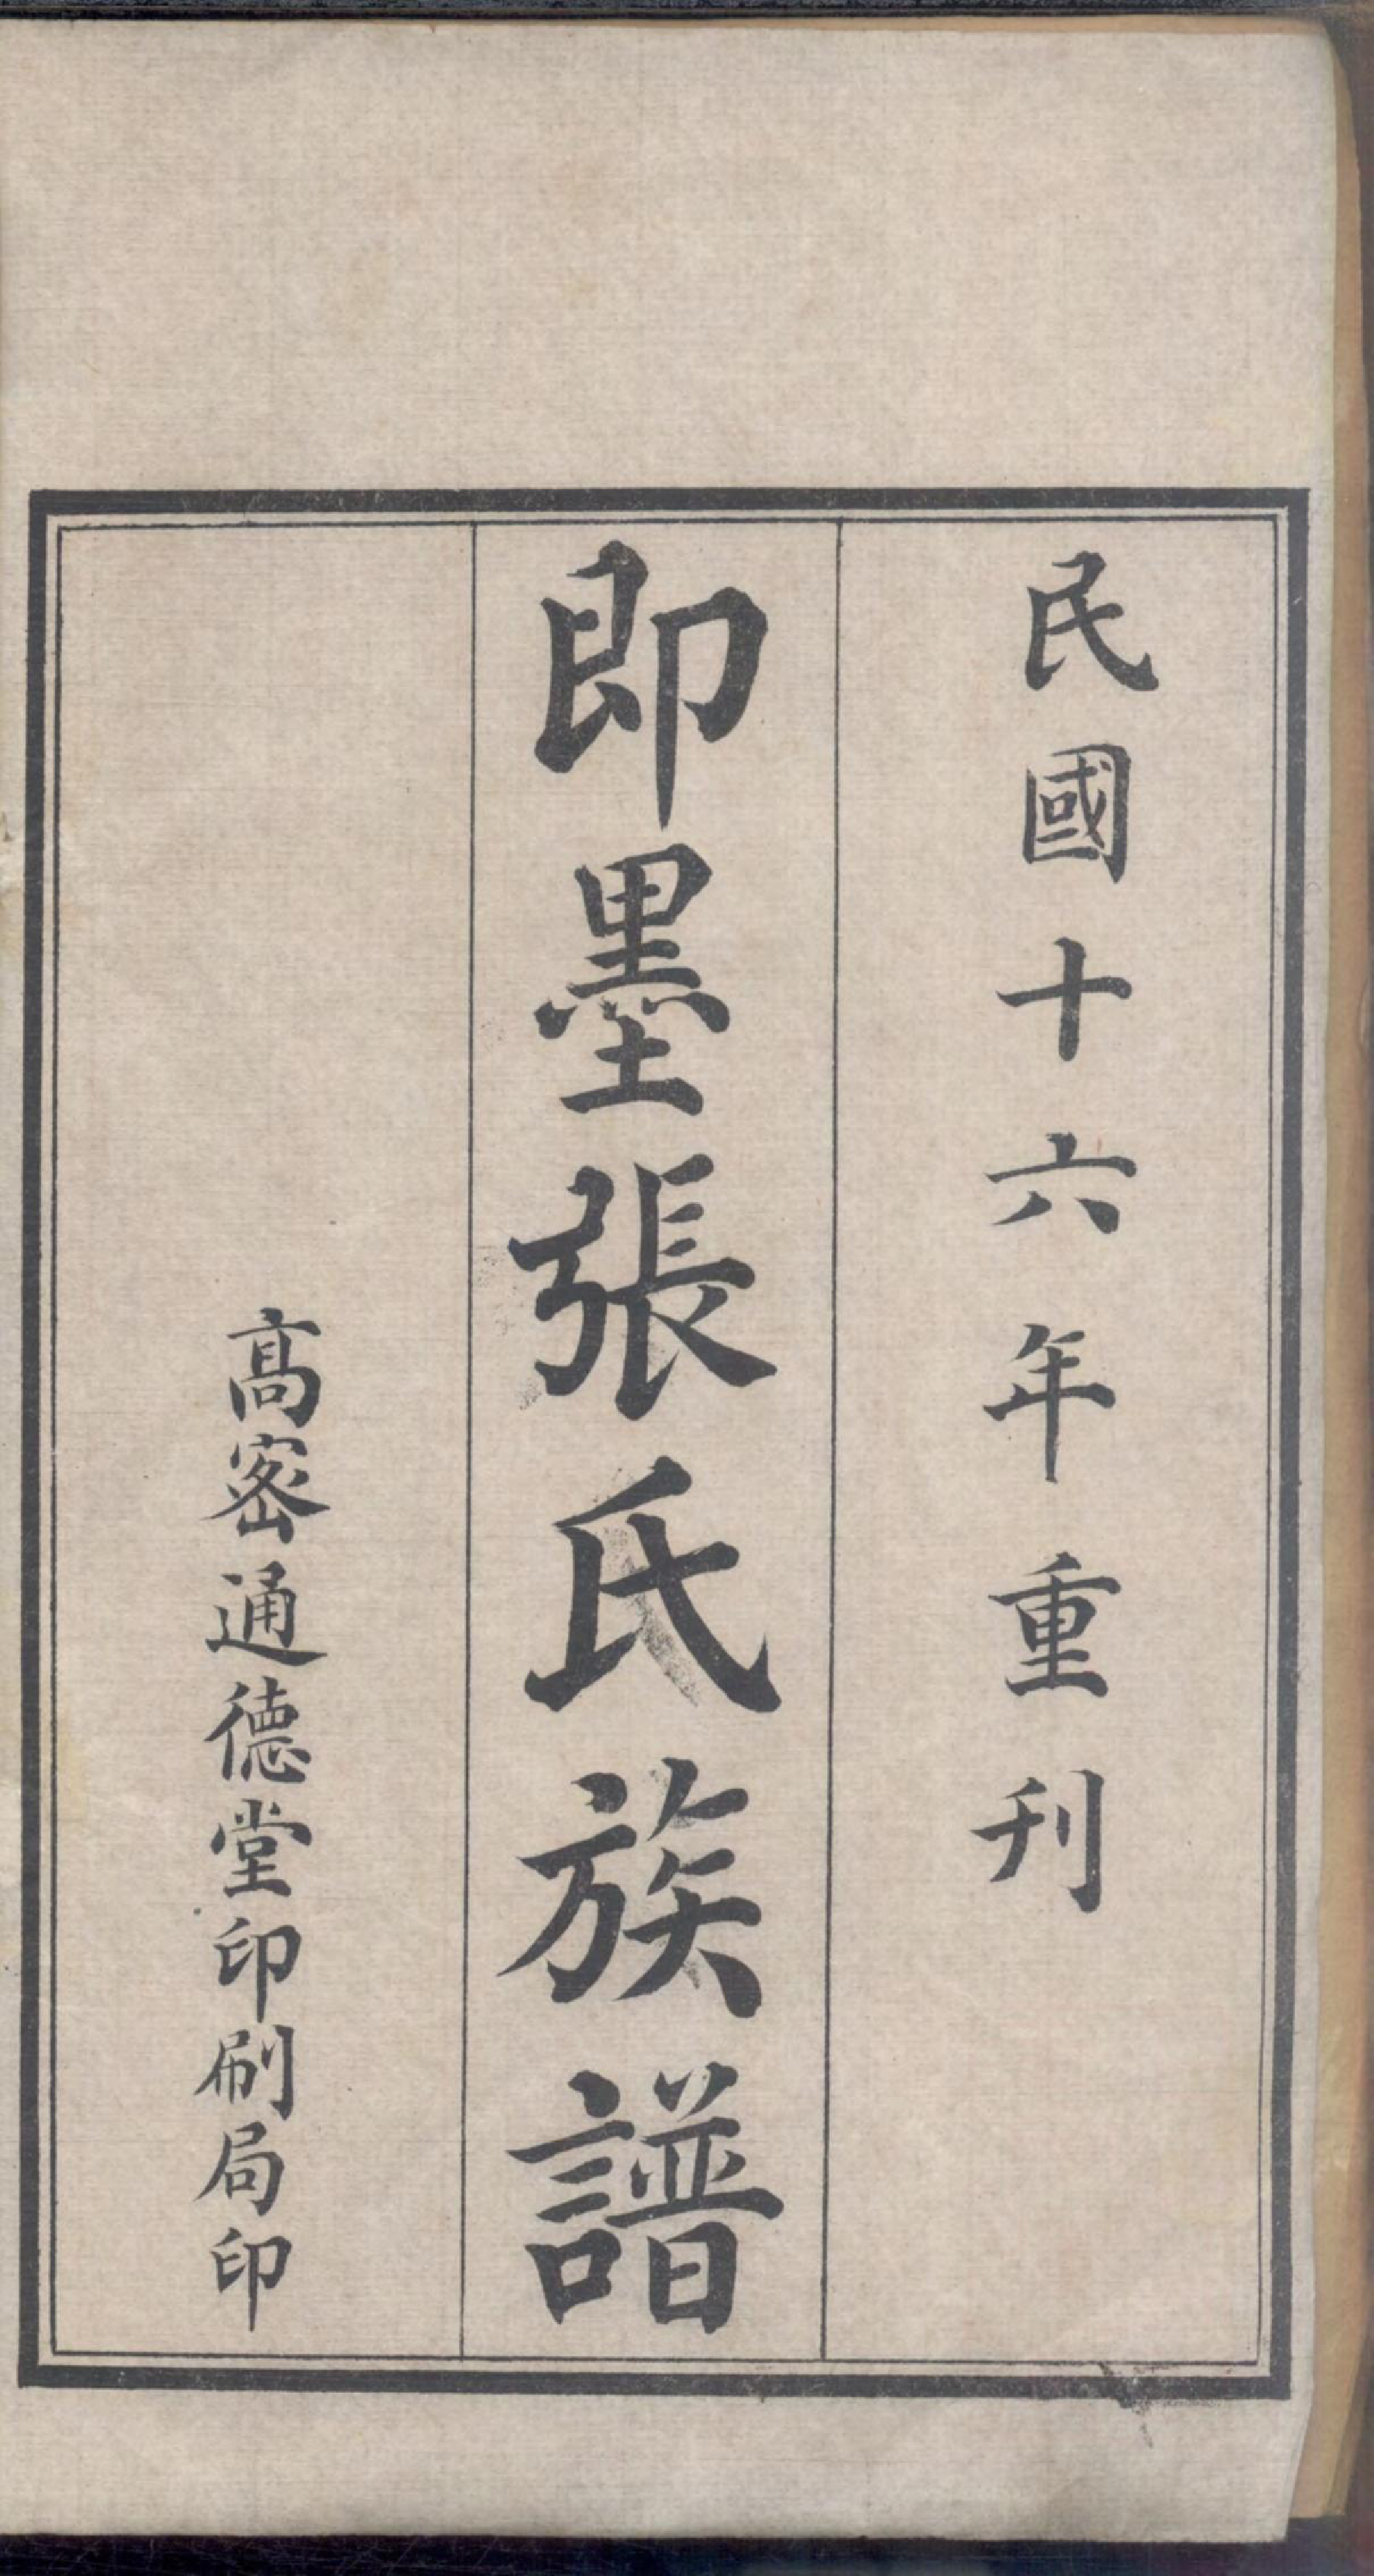 民國十六年重刊
即墨張氏族譜
髙密通德堂印刷局印